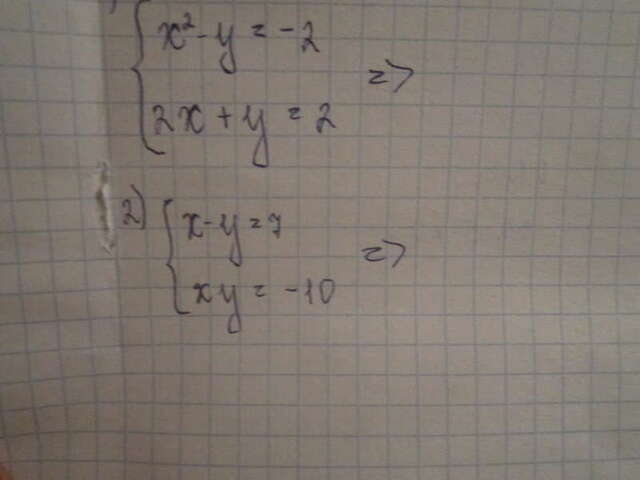 x² - y = -2
=>
2x + y = 2
2) x - y = 7
=>
xy = -10